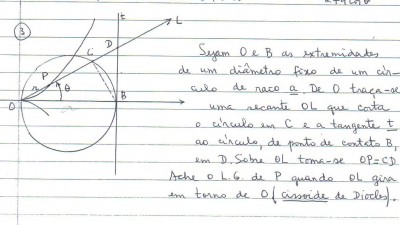 ③
t
L
C
D
P
r
θ
O
B
Sejam O e B as extremidades
de um diâmetro fixo de um cír-
culo de raio a. De O traça-se
uma secante OL que corta
o círculo em C e a tangente t
ao círculo, de ponto de contato B,
em D. Sobre OL toma-se OP=CD.
Ache o L.G. de P quando OL gira
em torno de O (cissoide de Diocles).